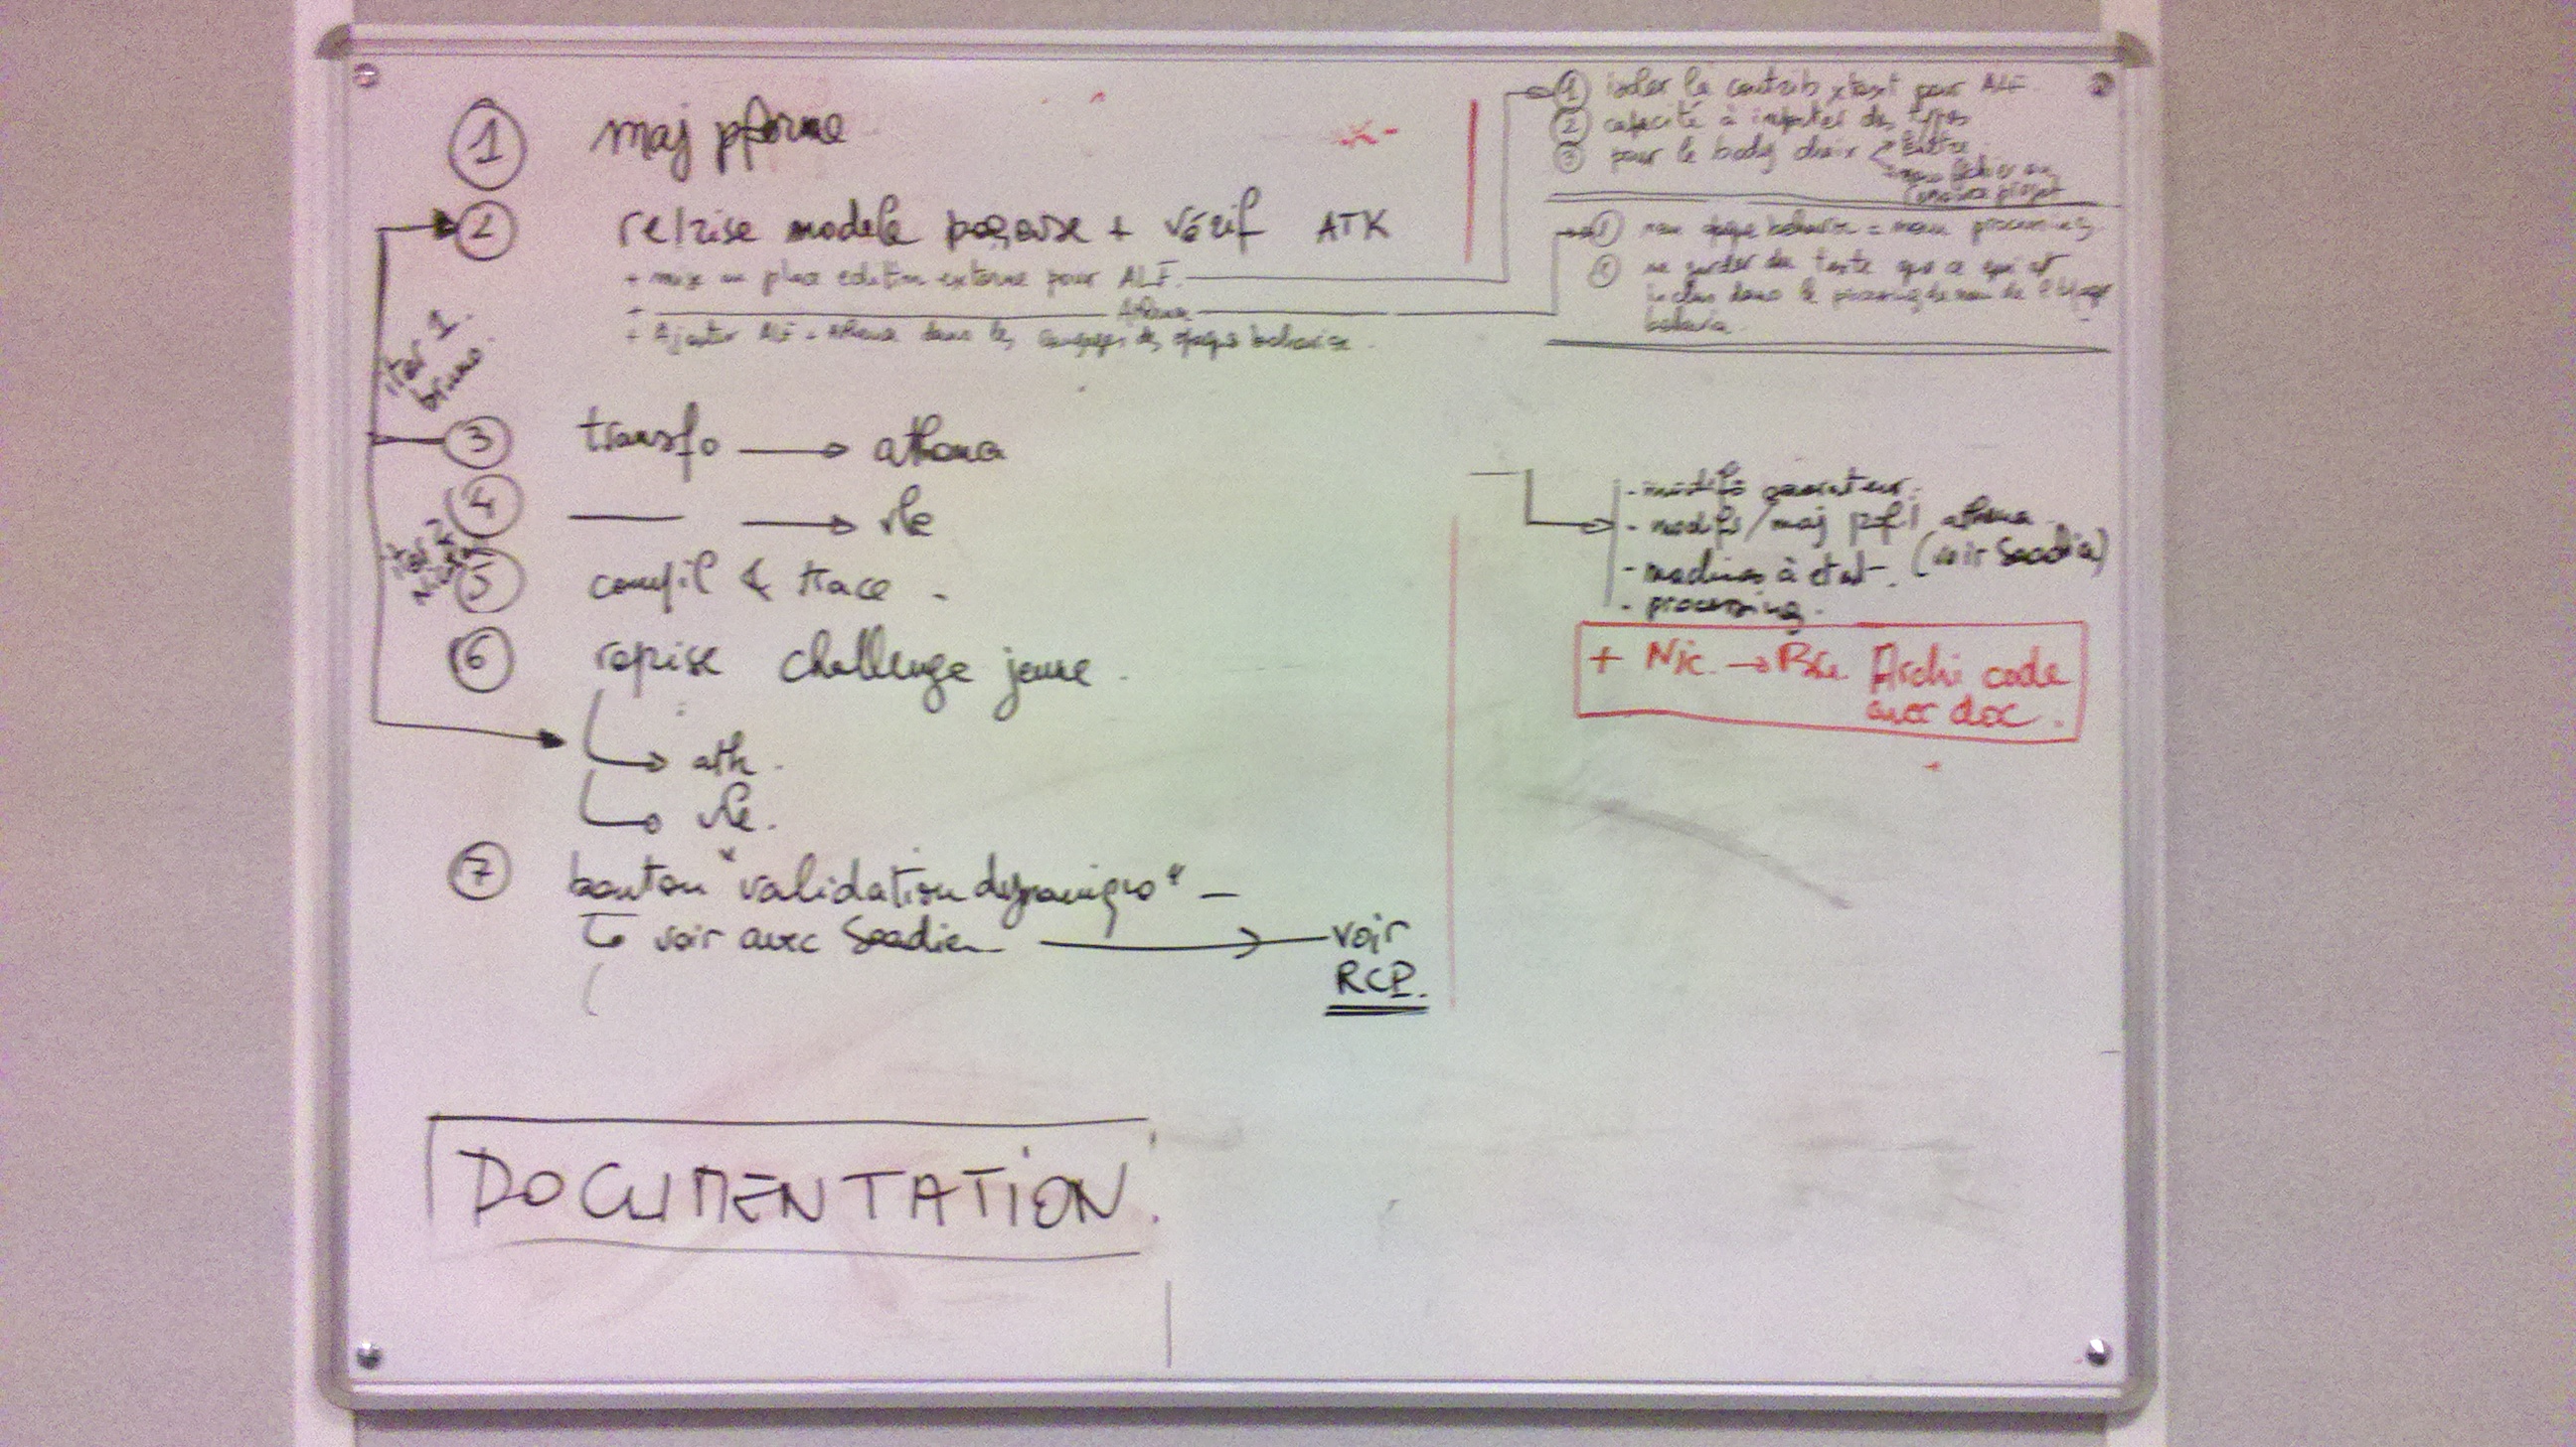 1 maj pforme
2 reprise modele + vérif ATK
+ mise en place edition externe pour ALF.
+ ——— Athena ———
+ Ajouter ALF + Athena dans les langages des opaque behavior.
iter 1.
bruno.
3 transfo → athena
4 —— → vle
iter 2
5 compil & trace.
6 reprise challenge jeune.
→ ath.
→ vle.
7 bouton "validation dynamique" –
→ voir avec Saadia → voir
RCP.
DOCUMENTATION.
1 isoler la contrib xtext pour ALF.
2 capacité à importer des types
3 pour le body choix
1 nom opaque behavior = nom processing
2 ne garder du texte que ce qui est
inclus dans le processing de nom de l'opaque
behavior.
- modifs
- modifs/maj profil athena
(voir Saadia)
- machines à etat.
- processing.
+ Nic. → Bru. Archi code
avec doc.